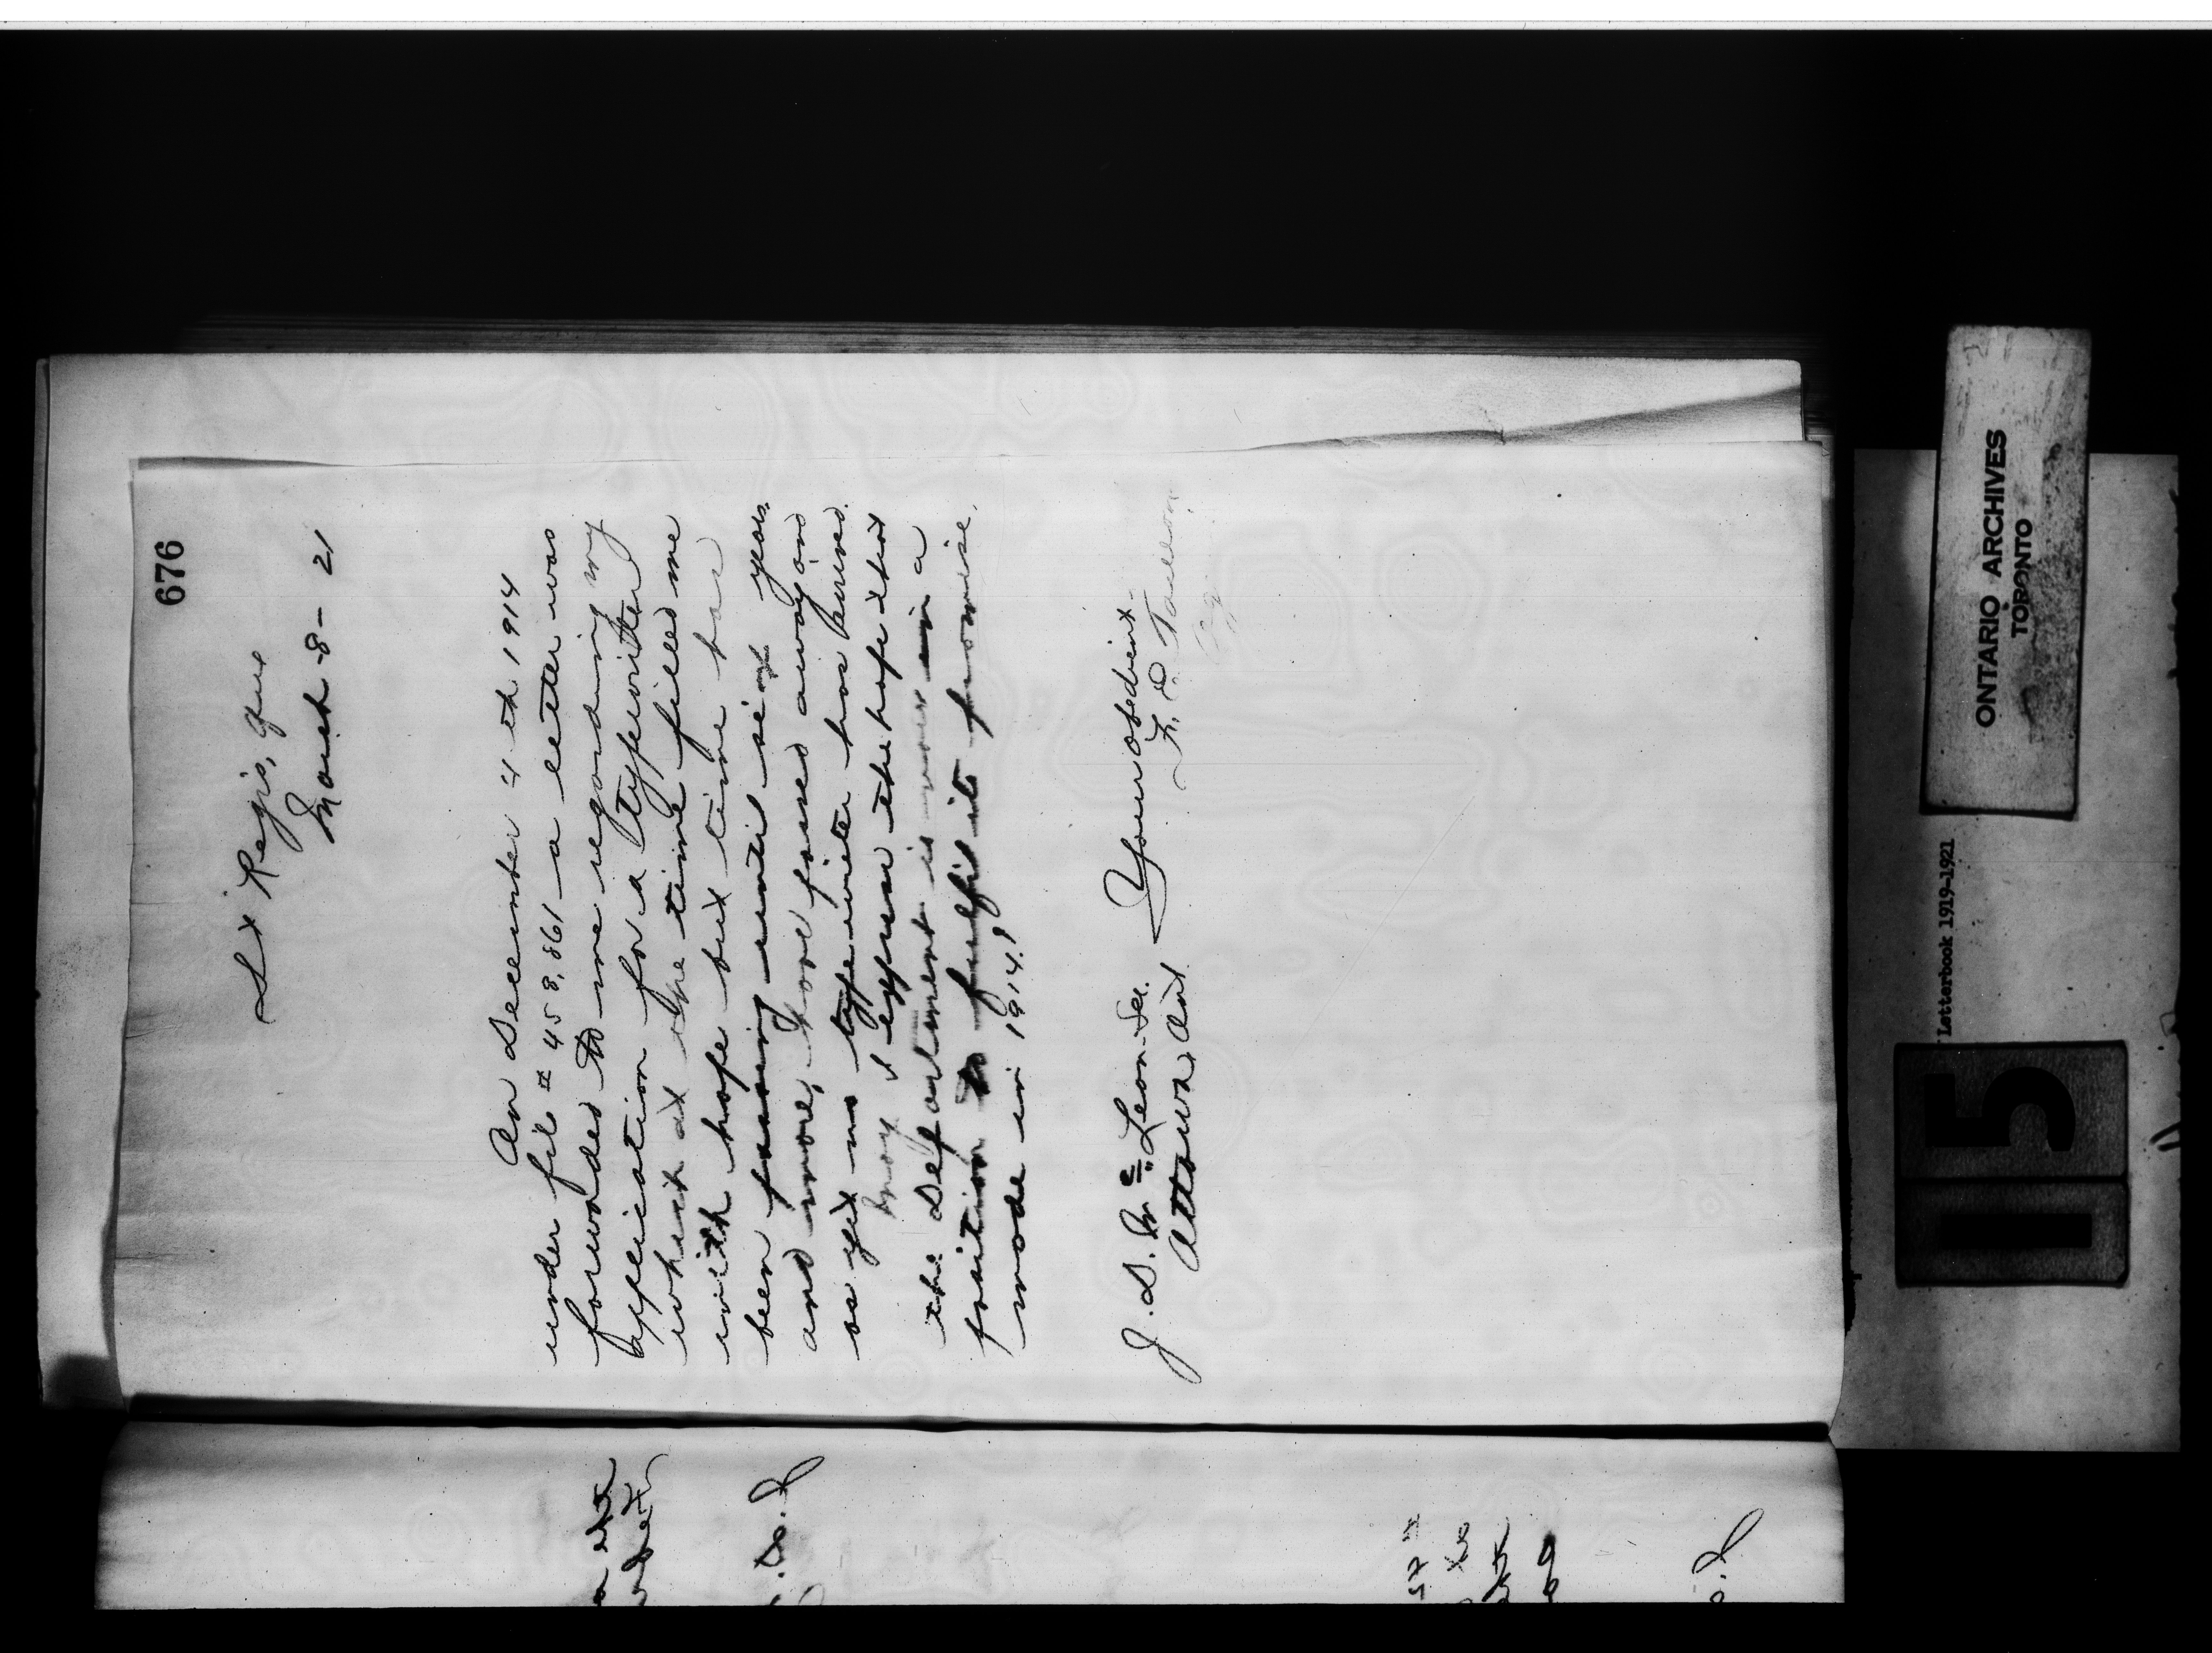 676
St Regis, Que
March 8 - 21
On December 4th 1914
under file # 458,861 - a letter was
forwarded to me regarding my
application for a typewriter
which at the time filled me
with hope but time has
been passing until six years
and more, have passed away and
as yet no typewriter has arrived.
May I express the hope that
the Department is now in a
position to fulfil its promise,
made in 1914!
Your obedient
F. E. Taillon,
Agt
J. D. McLean Sec.
Ottawa Ont
ONTARIO ARCHIVES
TORONTO
Letterbook 1919-1921
115